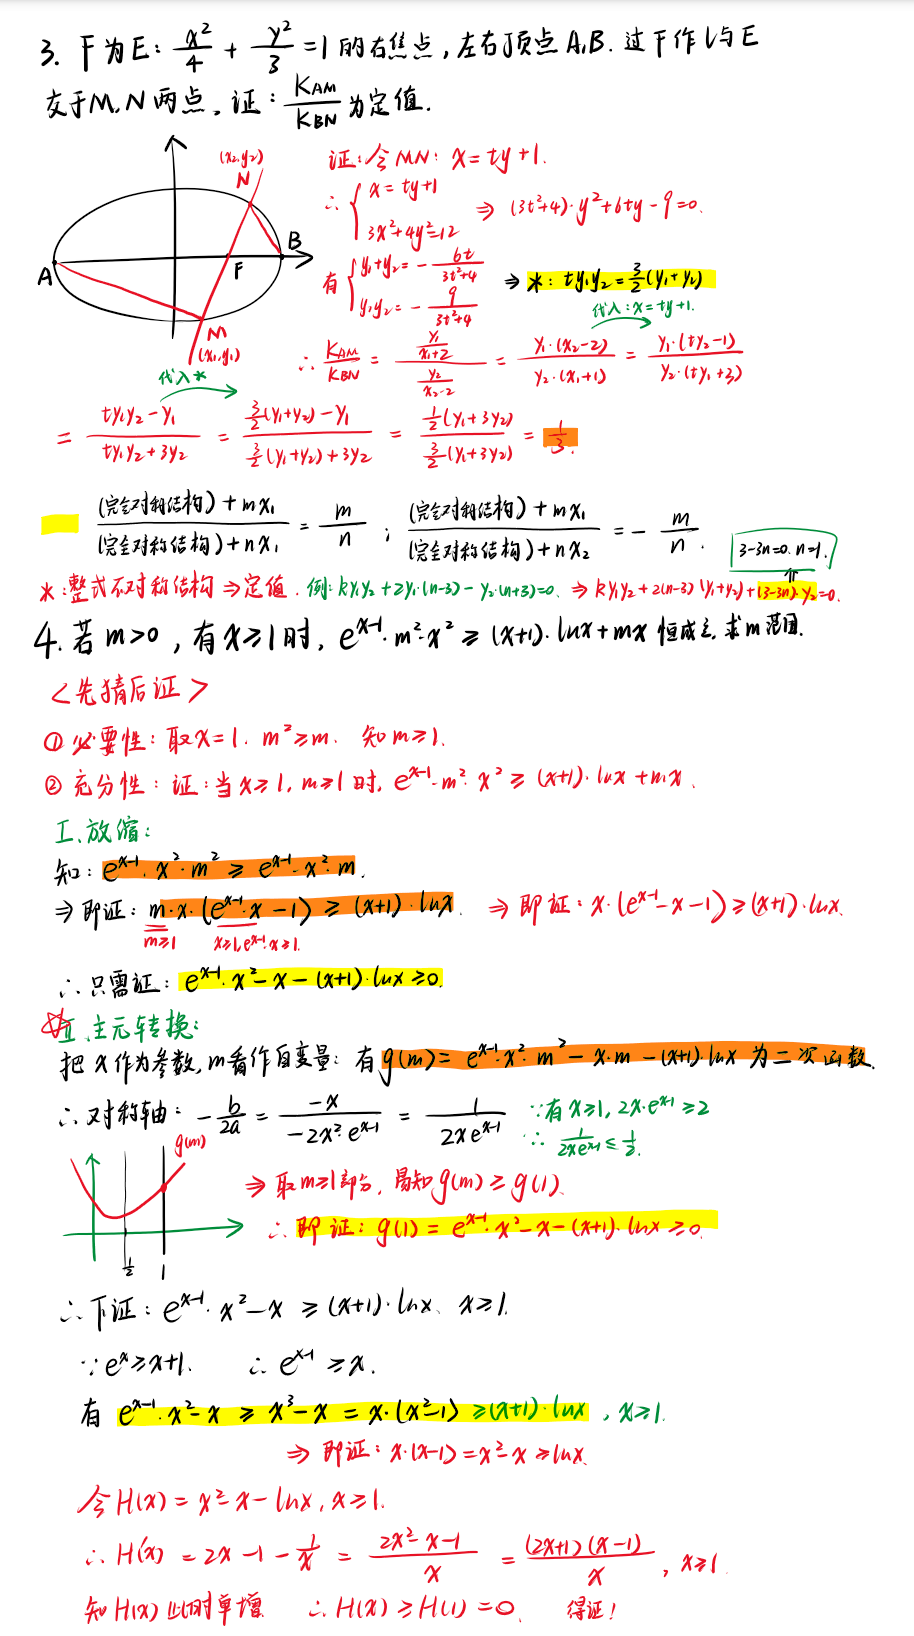 3. F为E: x²/4 + y²/3 = 1 的右焦点, 左右顶点A.B. 过F作l与E
交于M.N两点. 证: K_AM/K_BN 为定值.
(x₂,y₂)
N
A
B
F
M
(x₁,y₁)
证: 令MN: x = ty+1.
∴ { x = ty+1
3x²+4y²=12
⇒ (3t²+4)·y²+6ty-9=0.
有 { y₁+y₂ = - 6t/(3t²+4)
y₁y₂ = - 9/(3t²+4)
⇒ *: ty₁y₂ = 3/2(y₁+y₂)
代入: x=ty+1.
∴ K_AM/K_BN = (y₁/(x₁+2))/(y₂/(x₂-2)) = y₁·(x₂-2)/y₂·(x₁+1) = y₁·(ty₂-1)/y₂·(ty₁+3)
代入*
= (ty₁y₂-y₁)/(ty₁y₂+3y₂) = (3/2(y₁+y₂)-y₁)/(3/2(y₁+y₂)+3y₂) = 1/2(y₁+3y₂)/3/2(y₁+3y₂) = 1/3.
((完全对称结构)+mx₁)/((完全对称结构)+nx₁) = m/n ; ((完全对称结构)+mx₁)/((完全对称结构)+nx₂) = - m/n .
3-3n=0. n=1.
*:整式不对称结构 ⇒ 定值. 例: ky₁y₂+2y₁·(n-3)-y₂·(n+3)=0. ⇒ ky₁y₂+2(n-3)(y₁+y₂)+(3-3n)·y₂=0.
4. 若m>0, 有x≥1时, e^(x-1)·m²·x² ≥ (x+1)·lnx+mx 恒成立. 求m范围.
<先猜后证>
① 必要性: 取x=1. m²≥m. 知m≥1.
② 充分性: 证: 当x≥1, m≥1时, e^(x-1)·m²·x² ≥ (x+1)·lnx+mx.
I. 放缩:
知: e^(x-1)·x²·m² ≥ e^(x-1)·x²·m.
⇒ 即证: m·x·(e^(x-1)·x-1) ≥ (x+1)·lnx. ⇒ 即证: x·(e^(x-1)-x-1) ≥ (x+1)·lnx.
m≥1 x≥1, e^(x-1)·x≥1.
∴ 只需证: e^(x-1)·x²-x-(x+1)·lnx≥0.
☆II. 主元转换:
把x作为参数, m看作自变量: 有g(m)= e^(x-1)·x²·m²-x·m-(x+1)·lnx 为二次函数.
∴ 对称轴: - b/2a = -x/(-2x²·e^(x-1)) = 1/(2xe^(x-1)) ∵有x≥1, 2x·e^(x-1)≥2
∴ 1/(2xe^(x-1)) ≤ 1/2.
g(m)
1/2 1
⇒ 取m≥1部分, 易知g(m)≥g(1).
∴ 即证: g(1)= e^(x-1)·x²-x-(x+1)·lnx≥0.
∴ 下证: e^(x-1)·x²-x ≥ (x+1)·lnx. x≥1.
∵ e^x≥x+1. ∴ e^(x-1) ≥x.
有 e^(x-1)·x²-x ≥ x³-x = x·(x²-1) ≥(x+1)·lnx, x≥1.
⇒ 即证: x·(x-1)=x²-x ≥lnx.
令H(x)=x²-x-lnx, x≥1.
∴ H'(x) = 2x-1- 1/x = (2x²-x-1)/x = (2x+1)(x-1)/x , x≥1
知H(x)此时单增 ∴ H(x)≥H(1)=0. 得证!